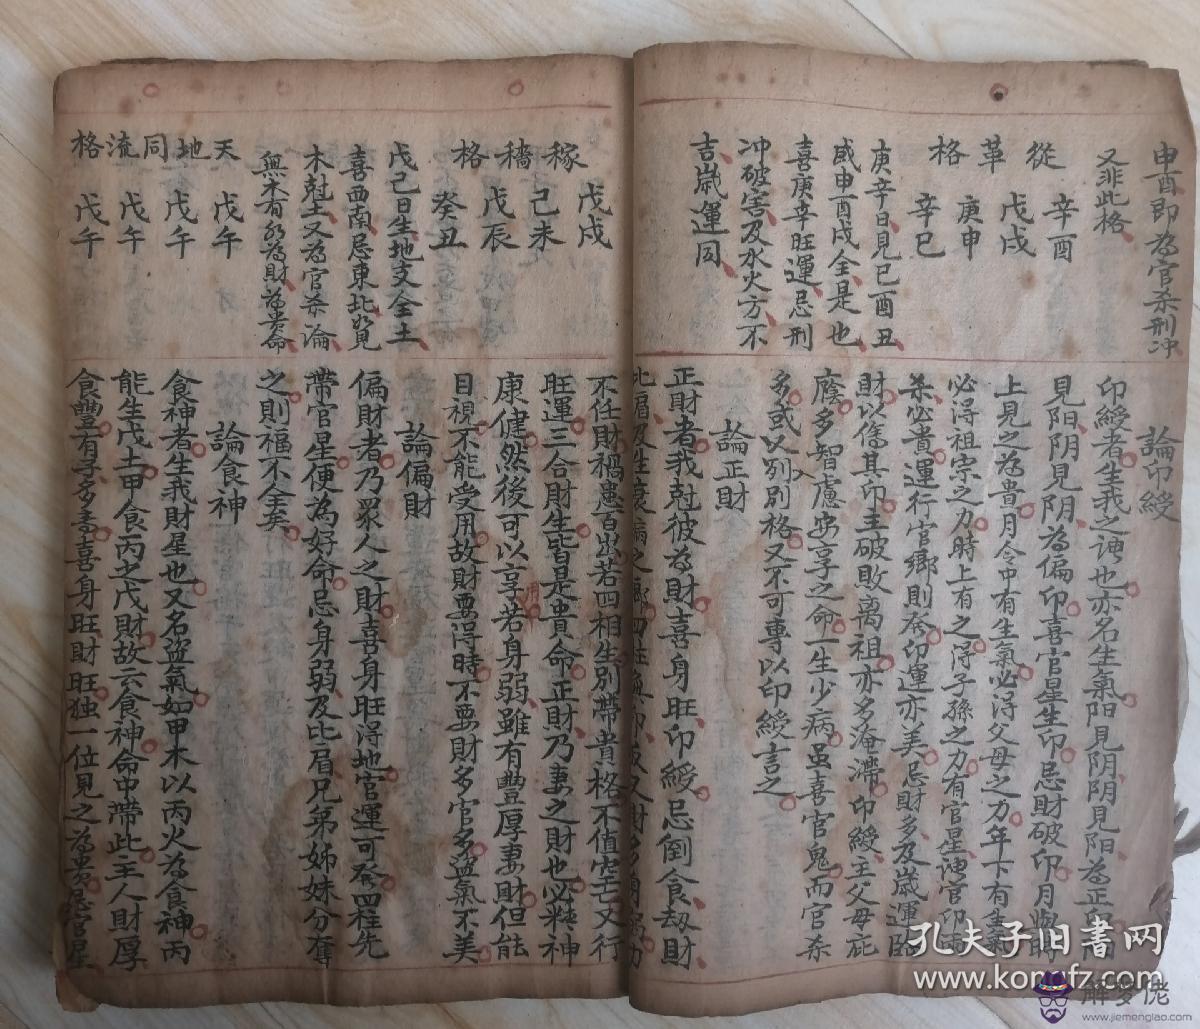 申酉即為官杀刑冲
又非此格
從革格
辛酉
戊戌
庚申
辛巳
庚辛日見巳酉丑
或申酉戌全是也
喜庚辛旺運忌刑
冲破害及水火方不
吉歲運同
論印綬
印綬者生我之神也亦名生氣阳見阴阴見阳為正印阳
見阳阴見阴為偏印喜官星生印忌財破印月
上見之為貴月令中有生氣必得父母之力年下有生氣
必得祖宗之力時上有之得子孫之力有官星神官印
杀必貴運行官鄉則發印運亦美忌財多及歲運臨
財以傷其印主破敗离祖亦多淹滯印綬主父母庇
廕多智慮安享之命一生少病虽喜官鬼而官杀
多或入別格又不可專以印綬言之
論正財
正財者我尅彼為財喜身旺印綬忌倒食劫財
稼穡格
戊戌
己未
戊辰
癸丑
戊己日生地支全土
喜西南忌東北如見
木尅土又為官杀論
無木有水為財為貴命
天地同流格
戊午
戊午
戊午
戊午
不任財禍患百出若四相生別帶貴格不值空亡又行
旺運三合財生皆是貴命正財乃妻之財也必精神
康健然後可以享用若身弱雖有豐厚妻財但能
目視不能受用故財要得時不要財多官多盜氣不美
論偏財
偏財者乃眾人之財喜身旺得地官運可發四柱先
帶官星便為好命忌身弱及比肩兄弟姊妹分奪
之則福不全矣
論食神
食神者生我財星也又名盜氣如甲木以丙火為食神丙
能生戊土甲食丙之戊財故云食神命中帶此主人財厚
食豐有子多壽喜身旺財旺独一位見之為貴忌官星
孔夫子旧书网
www.kongfz.com
解梦佬
www.jiemenglao.com